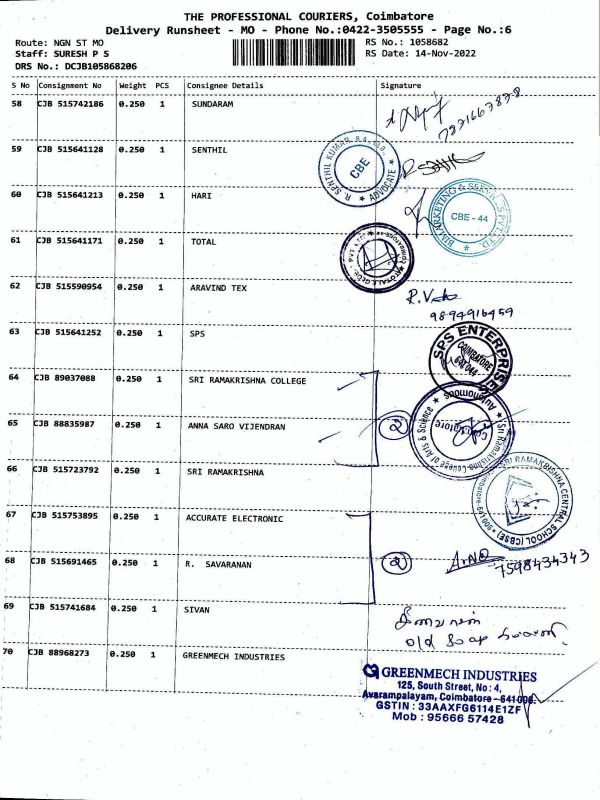 THE PROFESSIONAL COURIERS, Coimbatore
Delivery Runsheet - MO - Phone No.:0422-3505555 - Page No.:6
Route: NGN ST MO
RS No.: 1058682
Staff: SURESH P S
RS Date: 14-Nov-2022
DRS No.: DCJB105868206
S No Consignment No Weight PCS Consignee Details Signature
58 CJB 515742186 0.250 1 SUNDARAM
59 CJB 515641128 0.250 1 SENTHIL
R. SENTHIL KUMAR, B.A., B.L. ★ ADVOCATE ★ CBE
60 CJB 515641213 0.250 1 HARI
CBE - 44
61 CJB 515641171 0.250 1 TOTAL
62 CJB 515590954 0.250 1 ARAVIND TEX
9894916959
63 CJB 515641252 0.250 1 SPS
SPS ENTERPRISES
COIMBATORE
641 044
64 CJB 89037088 0.250 1 SRI RAMAKRISHNA COLLEGE
65 CJB 88835987 0.250 1 ANNA SARO VIJENDRAN
2
Sri Ramakrishna College of Arts & Science ★ Autonomous ★
Coimbatore
66 CJB 515723792 0.250 1 SRI RAMAKRISHNA
SRI RAMAKRISHNA CENTRAL SCHOOL (CBSE)
67 CJB 515753895 0.250 1 ACCURATE ELECTRONIC
68 CJB 515691465 0.250 1 R. SAVARANAN
2
7598434343
69 CJB 515741684 0.250 1 SIVAN
old soap
70 CJB 88968273 0.250 1 GREENMECH INDUSTRIES
GREENMECH INDUSTRIES
125, South Street, No : 4,
Avarampalayam, Coimbatore - 641006.
GSTIN : 33AAXFG6114E1ZF
Mob : 95666 57428